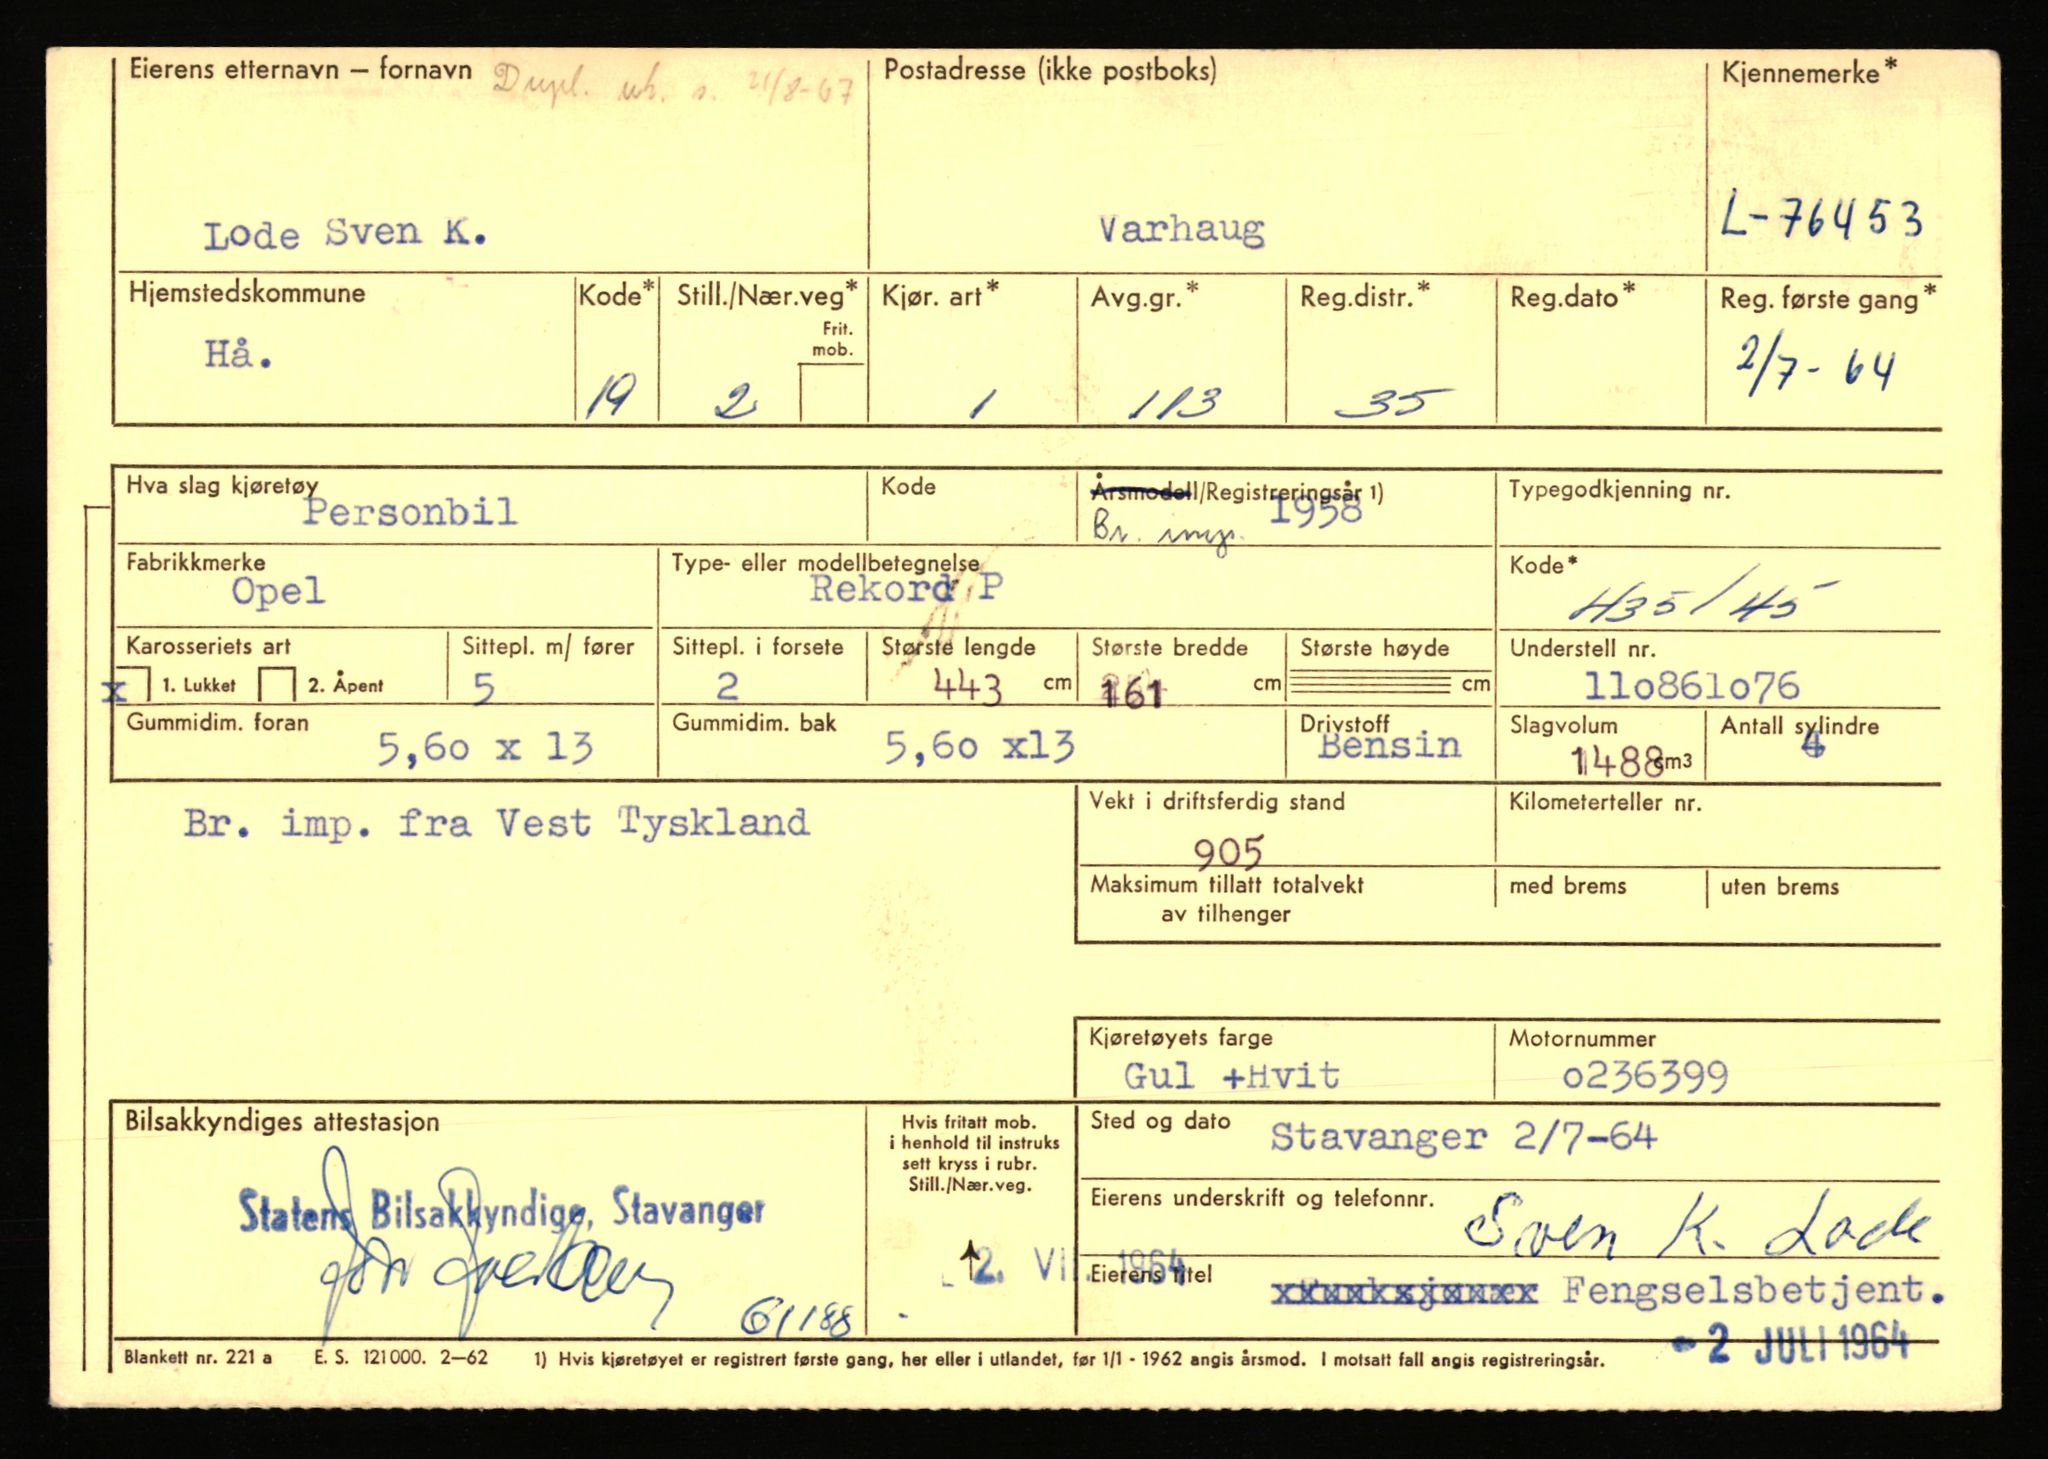 Eierens etternavn – fornavn Dupl. utst. 21/8-67
Postadresse (ikke postboks)
Kjennemerke*
Lode Sven K.
Varhaug
L-76453
Hjemstedskommune
Kode*
Still./Nær.veg*
Frit. mob.
Kjør. art*
Avg.gr.*
Reg.distr.*
Reg.dato*
Reg. første gang*
Hå.
19
2
1
113
35
2/7-64
Hva slag kjøretøy
Personbil
Kode
Årsmodell/Registreringsår 1)
Br. imp. 1958
Typegodkjenning nr.
Fabrikkmerke
Opel
Type- eller modellbetegnelse
Rekord P
Kode*
435/45
Karosseriets art
x 1. Lukket 2. Åpent
Sittepl. m/ fører
5
Sittepl. i forsete
2
Største lengde
443 cm
Største bredde
161 cm
Største høyde
cm
Understell nr.
110861076
Gummidim. foran
5,60 x 13
Gummidim. bak
5,60 x13
Drivstoff
Bensin
Slagvolum
1488 cm3
Antall sylindre
4
Br. imp. fra Vest Tyskland
Vekt i driftsferdig stand
905
Kilometerteller nr.
Maksimum tillatt totalvekt
av tilhenger
med brems
uten brems
Kjøretøyets farge
Gul +Hvit
Motornummer
0236399
Bilsakkyndiges attestasjon
Statens Bilsakkyndige, Stavanger
61188
Hvis fritatt mob.
i henhold til instruks
sett kryss i rubr.
Still./Nær.veg.
2. VII. 1964
Sted og dato
Stavanger 2/7-64
Eierens underskrift og telefonnr.
Sven K. Lode
Eierens titel
Fengselsbetjent.
- 2 JULI 1964
Blankett nr. 221 a E. S. 121000. 2–62 1) Hvis kjøretøyet er registrert første gang, her eller i utlandet, før 1/1 - 1962 angis årsmod. I motsatt fall angis registreringsår.